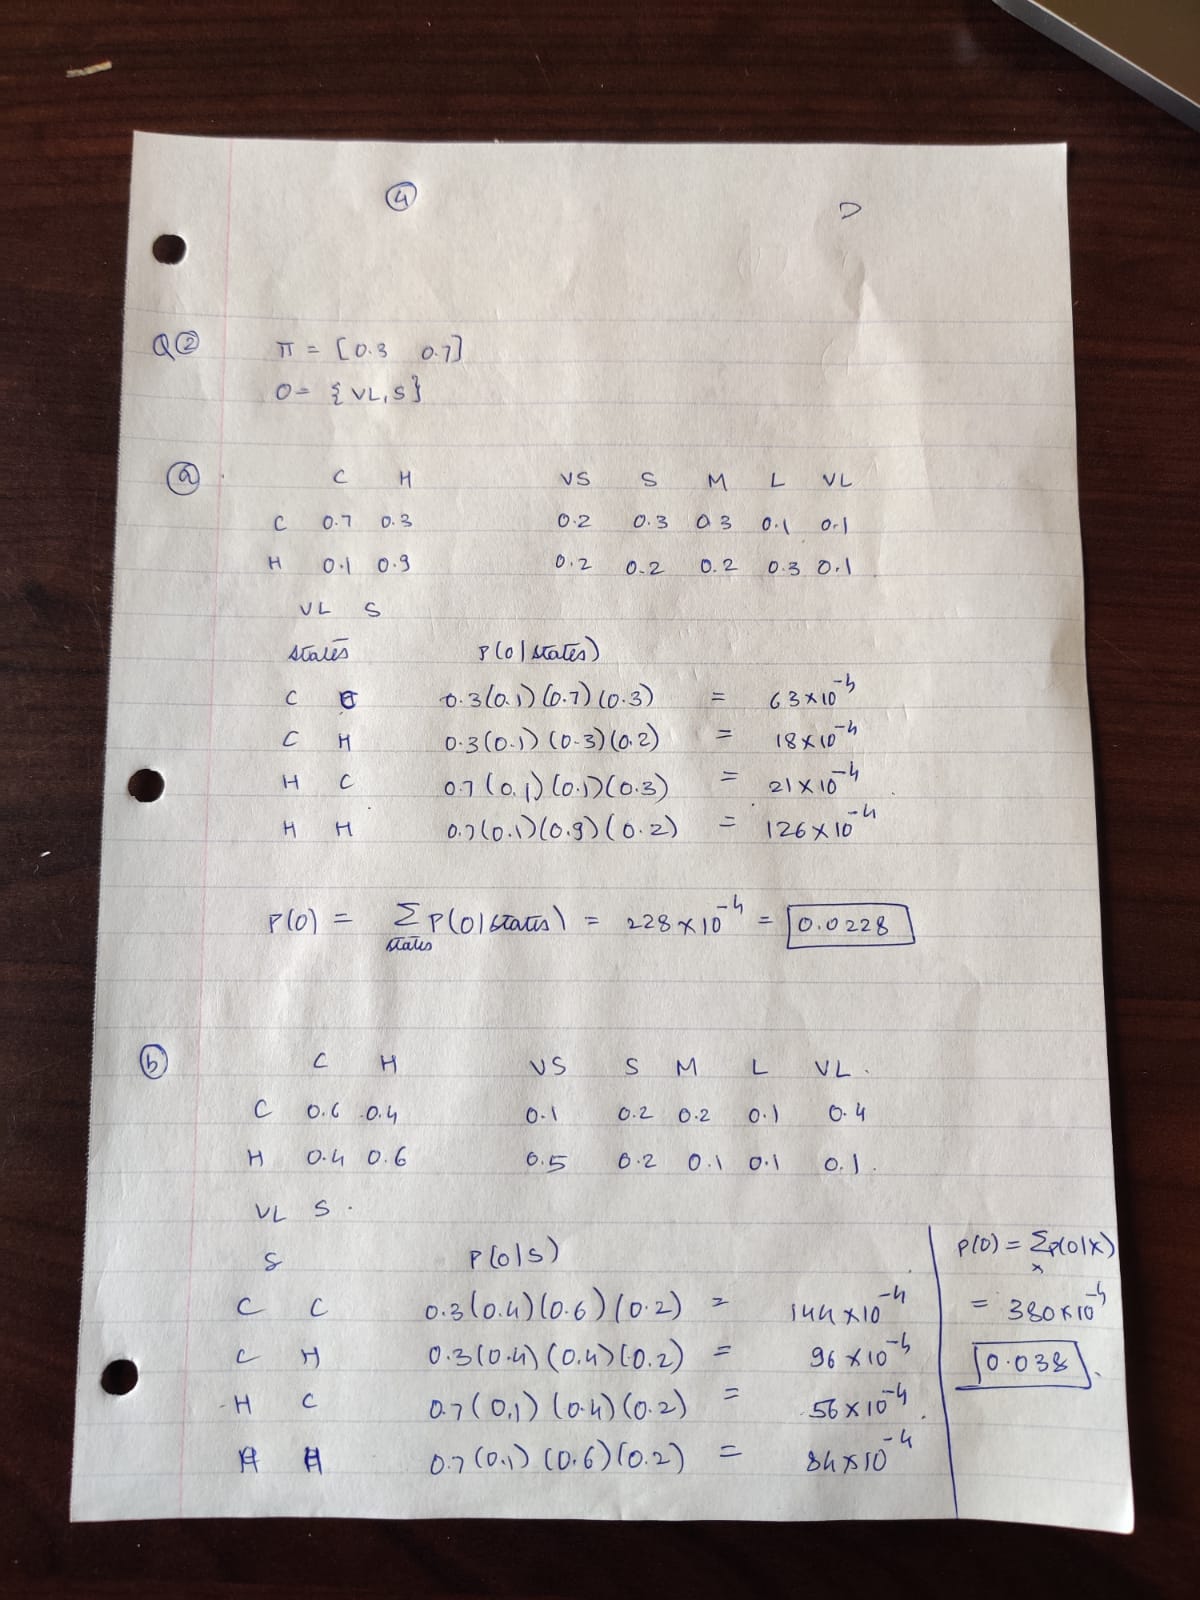 ④
Q②
π = [0.3 0.7]
O = {VL, S}
ⓐ
C H VS S M L VL
C 0.7 0.3 0.2 0.3 0.3 0.1 0.1
H 0.1 0.9 0.2 0.2 0.2 0.3 0.1
VL S
states P(O|states)
C C 0.3(0.1)(0.7)(0.3) = 63×10⁻⁴
C H 0.3(0.1)(0.3)(0.2) = 18×10⁻⁴
H C 0.7(0.1)(0.1)(0.3) = 21×10⁻⁴
H H 0.7(0.1)(0.9)(0.2) = 126×10⁻⁴
P(O) = Σ P(O|states) = 228×10⁻⁴ = 0.0228
states
ⓑ
C H VS S M L VL.
C 0.6 0.4 0.1 0.2 0.2 0.1 0.4
H 0.4 0.6 0.5 0.2 0.1 0.1 0.1.
VL S.
S P(O|S)
C C 0.3(0.4)(0.6)(0.2) = 144×10⁻⁴
C H 0.3(0.4)(0.4)(0.2) = 96×10⁻⁴
H C 0.7(0.1)(0.4)(0.2) = 56×10⁻⁴.
H H 0.7(0.1)(0.6)(0.2) = 84×10⁻⁴
P(O) = Σ P(O|X)
x
= 380×10⁻⁴
0.038.